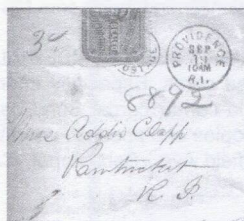 3c
POSTAGE
PROVIDENCE
SEP
10AM
R.I.
8892
Miss Addie Clapp
Pawtucket
R. I.